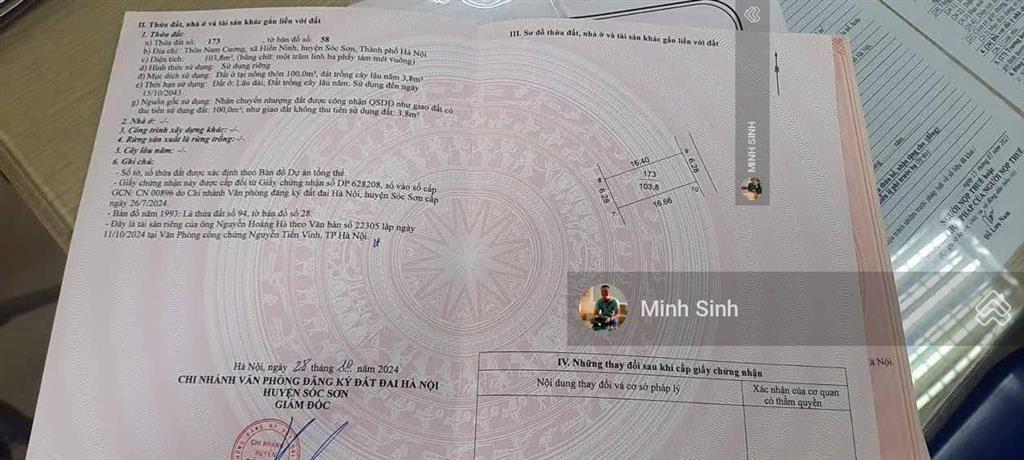 II. Thửa đất, nhà ở và tài sản khác gắn liền với đất
1. Thửa đất:
a) Thửa đất số: 173 , tờ bản đồ số: 58
b) Địa chỉ: Thôn Nam Cương, xã Hiền Ninh, huyện Sóc Sơn, Thành phố Hà Nội
c) Diện tích: 103,8m², (bằng chữ: một trăm linh ba phẩy tám mét vuông)
d) Hình thức sử dụng: Sử dụng riêng
đ) Mục đích sử dụng: Đất ở tại nông thôn 100,0m², đất trồng cây lâu năm 3,8m²
e) Thời hạn sử dụng: Đất ở: Lâu dài; Đất trồng cây lâu năm: Sử dụng đến ngày
15/10/2043
g) Nguồn gốc sử dụng: Nhận chuyển nhượng đất được công nhận QSDĐ như giao đất có
thu tiền sử dụng đất: 100,0m²; như giao đất không thu tiền sử dụng đất: 3,8m²
2. Nhà ở: -/-
3. Công trình xây dựng khác: -/-
4. Rừng sản xuất là rừng trồng: -/-
5. Cây lâu năm: -/-
6. Ghi chú:
- Số tờ, số thửa đất được xác định theo Bản đồ Dự án tổng thể.
- Giấy chứng nhận này được cấp đổi từ Giấy chứng nhận số DP 628208, số vào sổ cấp
GCN: CN 00896 do Chi nhánh Văn phòng đăng ký đất đai Hà Nội, huyện Sóc Sơn cấp
ngày 26/7/2024.
- Bản đồ năm 1993: Là thửa đất số 94, tờ bản đồ số 28.
- Đây là tài sản riêng của ông Nguyễn Hoàng Hà theo Văn bản số 22305 lập ngày
11/10/2024 tại Văn Phòng công chứng Nguyễn Tiến Vinh, TP Hà Nội.
Hà Nội, ngày 28 tháng 10 năm 2024
CHI NHÁNH VĂN PHÒNG ĐĂNG KÝ ĐẤT ĐAI HÀ NỘI
HUYỆN SÓC SƠN
GIÁM ĐỐC
CHI NHÁNH
HUYỆN
III. Sơ đồ thửa đất, nhà ở và tài sản khác gắn liền với đất
B
16.40
173
103,8
16.66
6.28
6.28
7
8
9
10
MINH SINH
Minh Sinh
IV. Những thay đổi sau khi cấp giấy chứng nhận
Nội dung thay đổi và cơ sở pháp lý
Xác nhận của cơ quan
có thẩm quyền
Hà Nội.